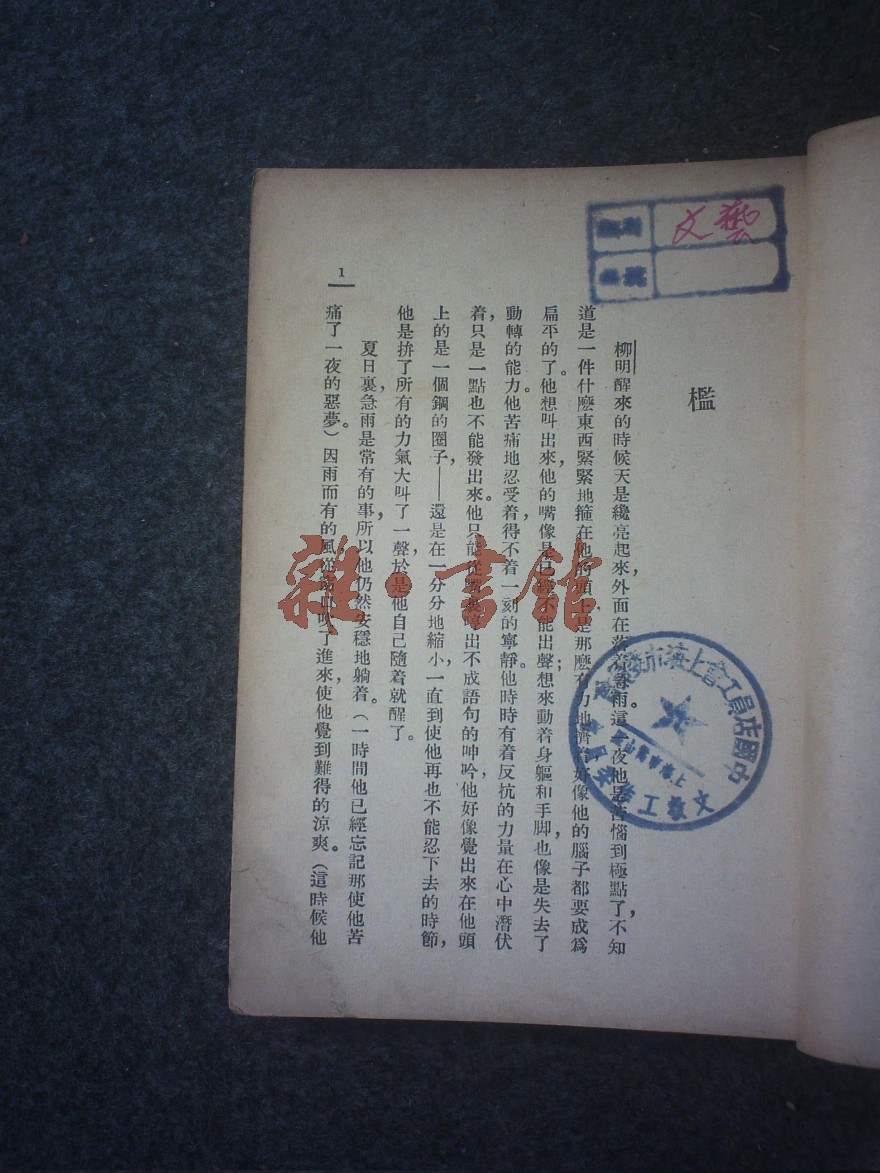 文藝
檻
柳明醒來的時候天是纔亮起來，外面在落着急雨。這一夜他是苦惱到極點了，不知
道是一件什麽東西緊緊地箍在他的頭上是那麽有力地擠着好像他的腦子都要成爲
扁平的了。他想叫出來，他的嘴像是已經不能出聲；想來動着身軀和手脚，也像是失去了
動轉的能力。他苦痛地忍受着，得不着一刻的寧靜。他時時有着反抗的力量在心中潛伏
着，只是一點也不能發出來。他只能從嘴裏出不成語句的呻吟，他好像覺出來在他頭
上的是一個鋼的圈子，——還是在一分分地縮小，一直到使他再也不能忍下去的時節，
他是拚了所有的力氣大叫了一聲，於是他自己隨着就醒了。
夏日裏，急雨是常有的事，所以他仍然安穩地躺着。（一時間他已經忘記那使他苦
痛了一夜的惡夢。）因雨而有的風，從窗口吹了進來，使他覺到難得的涼爽。（這時候他
1
雜·書館
中國店員工會上海市委員會
文教工